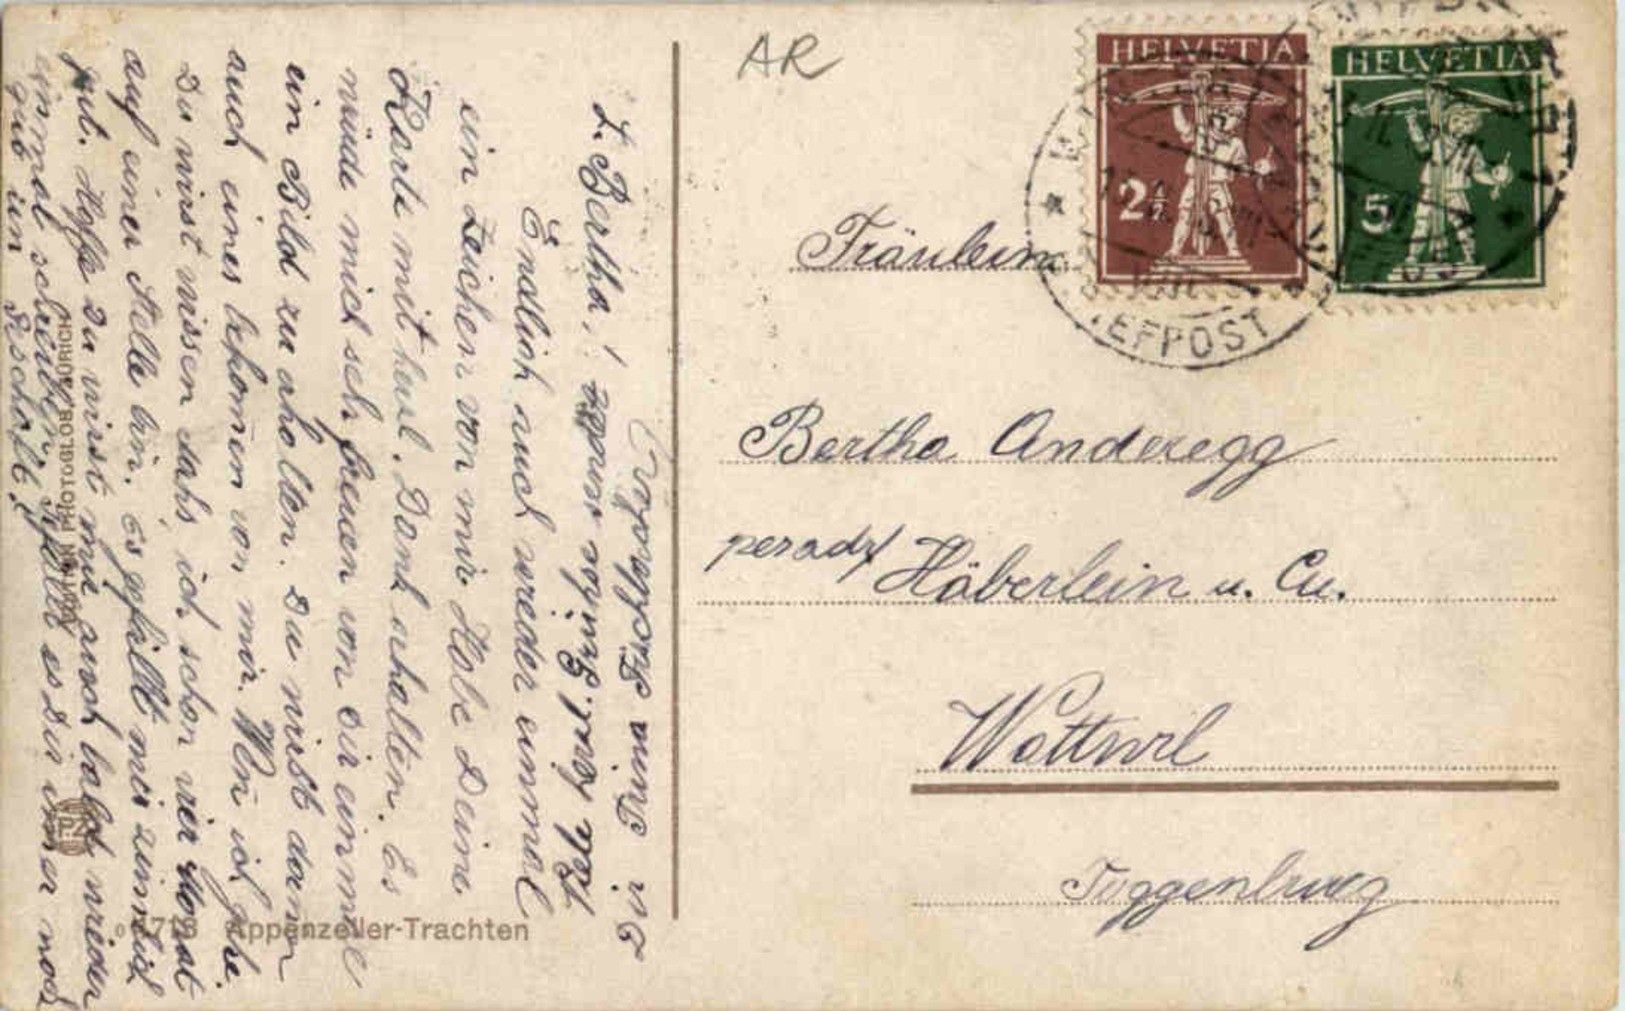 AR
HELVETIA
2½
HELVETIA
5
EFPOST
Fräulein
Bertha Anderegg
per adr Häberlein u. Cie.
Wattwil
Toggenburg
L. Bertha!
Endlich auch wieder einmal
ein Zeichen von mir Habe Deine
Karte mit herzl. Dank erhalten. Es
würde mich seh freuen von Dir einmal
ein Bild zu erhalten. Du wirst dann
auch eines bekomen von mir. Wen ich gehe.
Du wirst wissen dahs ich schon vier Monat
auf einer Stelle bin. Es gefällt mir zimlich
gut. Hoffe Du wirst mir auch bald wieder
einmal schreiben. Gefällt es Dir imer noch
gut im Geschäft.
Viele herzl. Grüsse
D ir Trina Fischbacher
PHOTOGLOB ZÜRICH
PZ
Appenzeller-Trachten